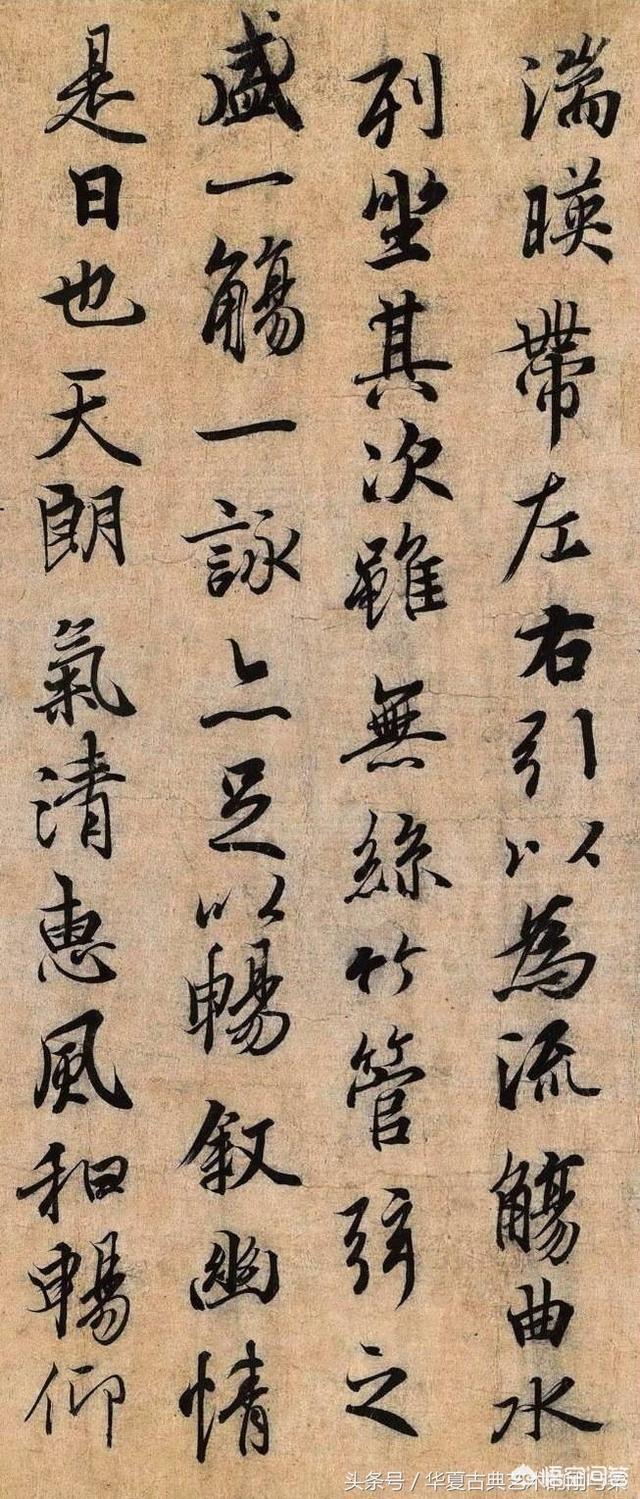 湍暎帶左右引以為流觴曲水
列坐其次雖無絲竹管弦之
盛一觴一詠亦足以暢敘幽情
是日也天朗氣清惠風和暢仰
悟空问答
头条号/华夏古典艺术